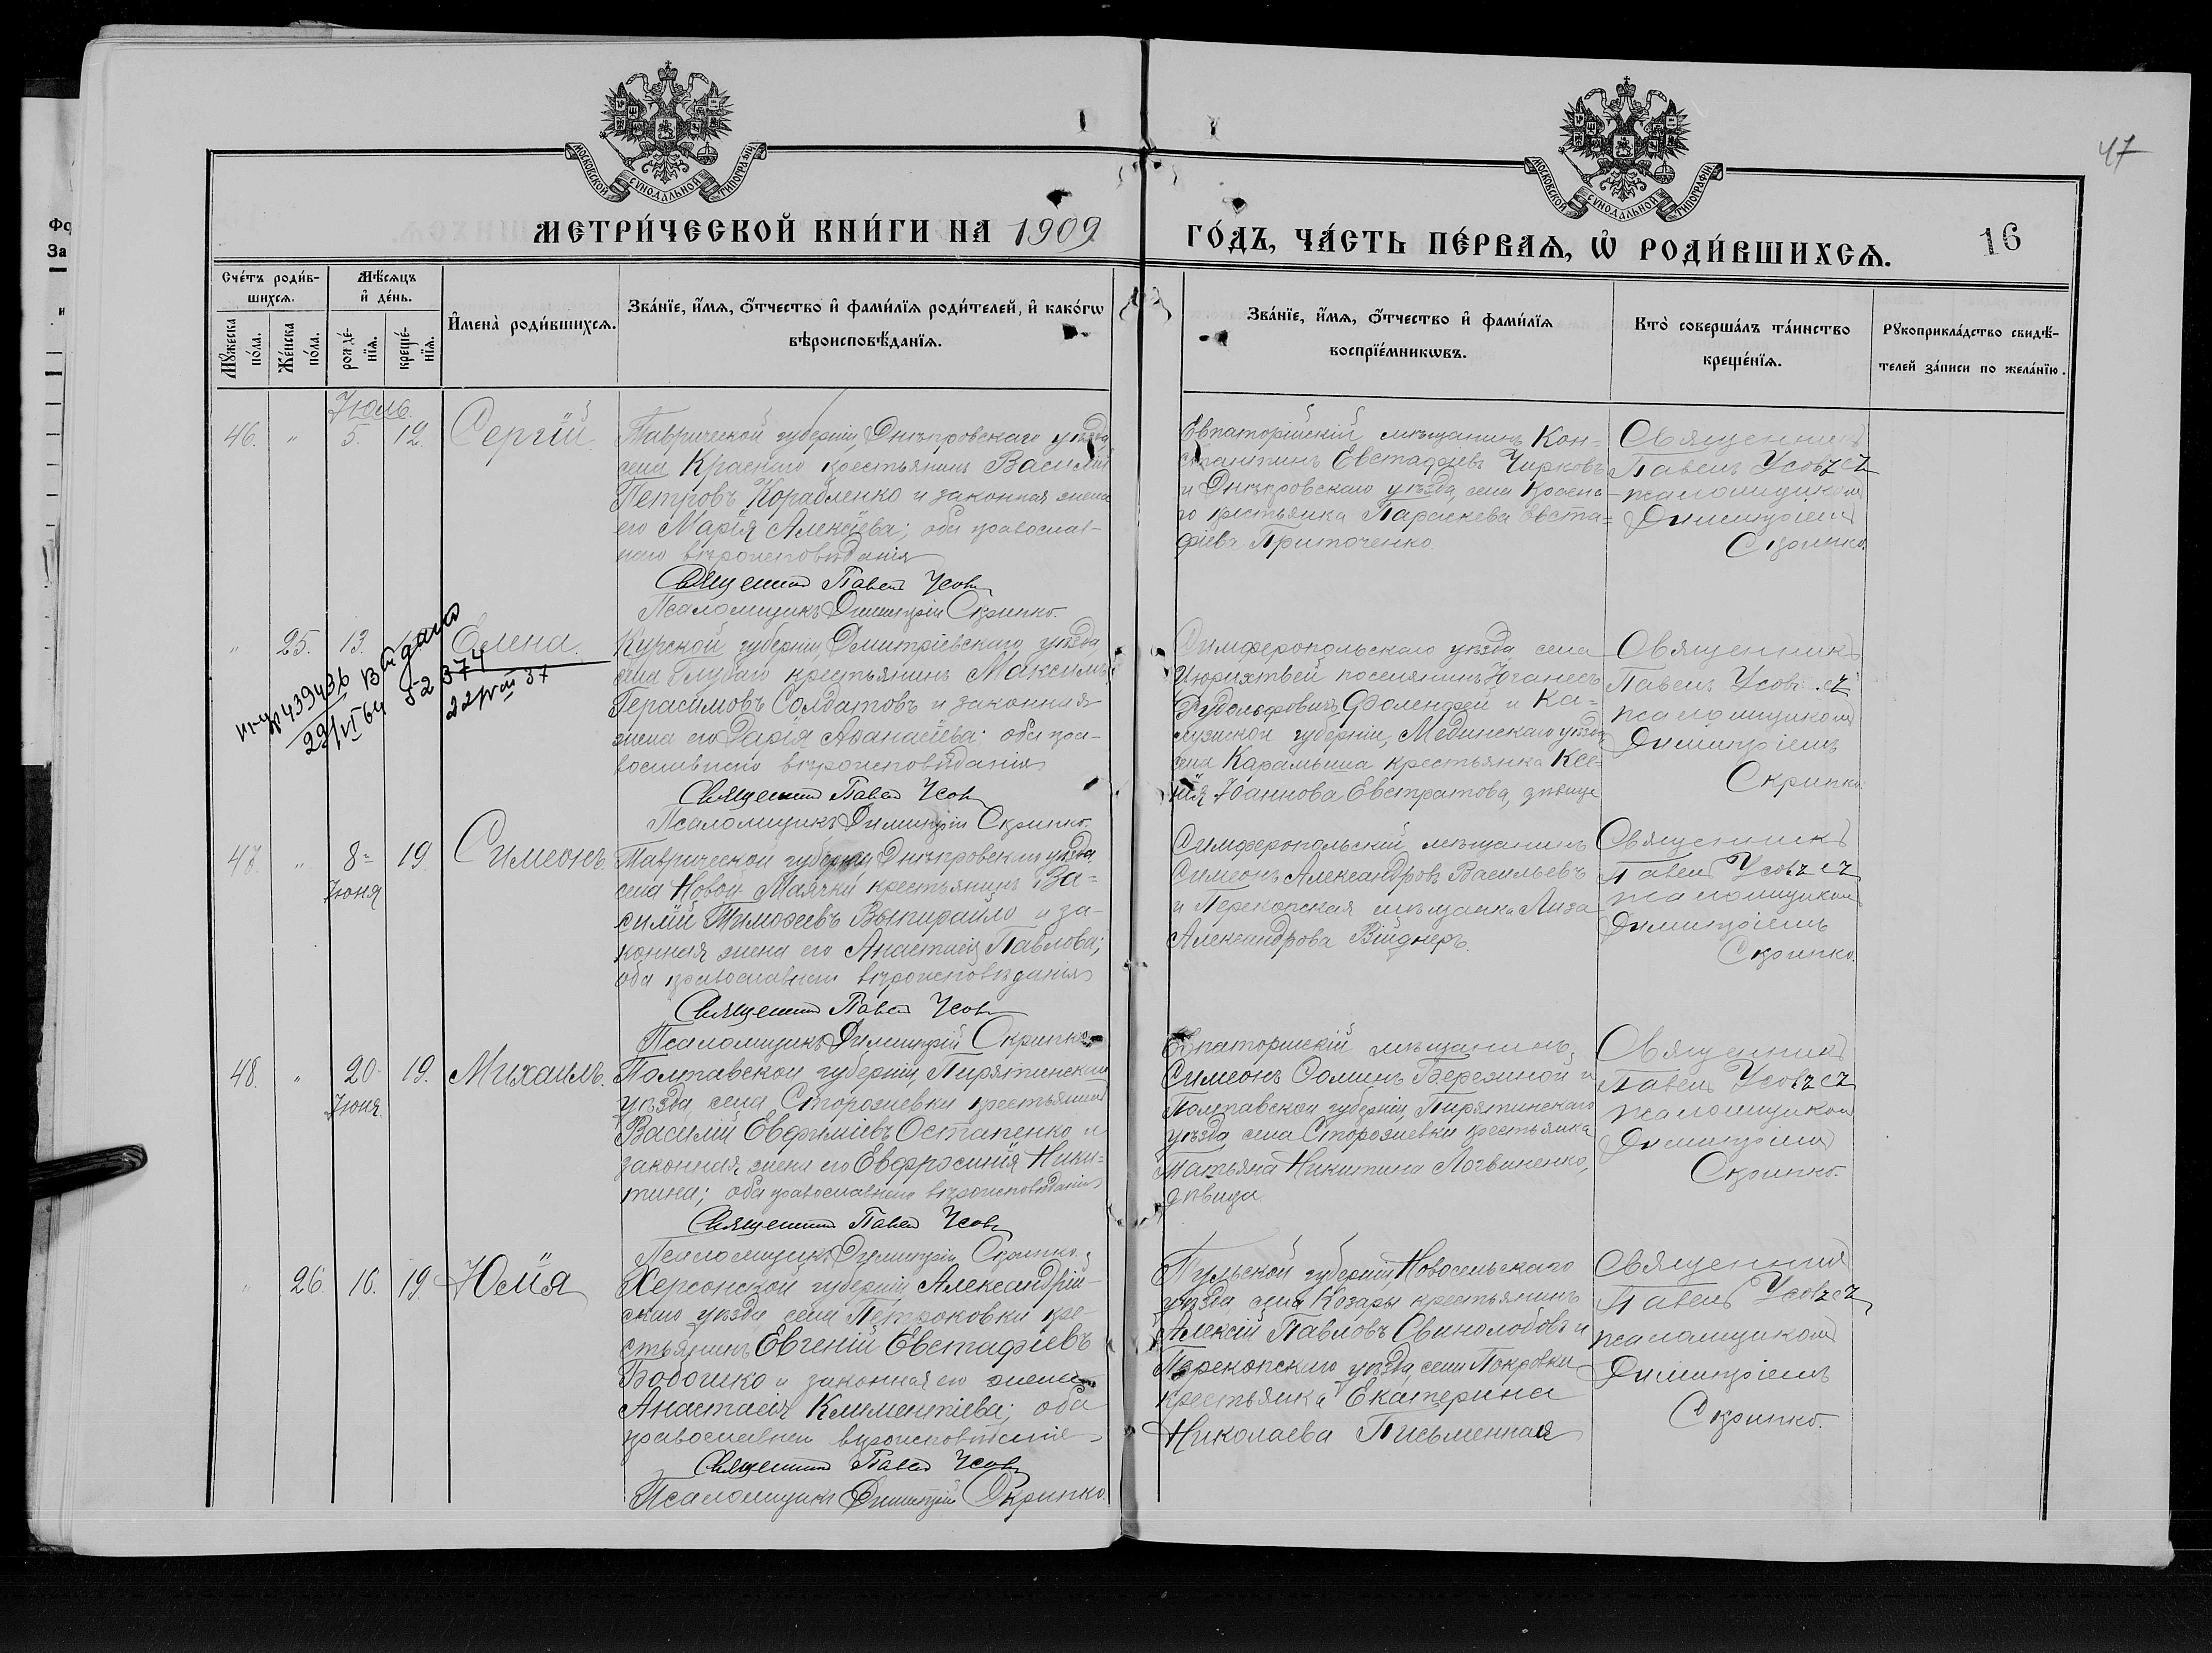 МОСКОВСКОЙ СѴНОДАЛЬНОЙ ТИПОГРАФІИ
МОСКОВСКОЙ СѴНОДАЛЬНОЙ ТИПОГРАФІИ
47
МЕТРИ́ЧЕСКОЙ КНИ́ГИ НА 1909
ГО́ДЪ, ЧА́СТЬ ПЕ́РВАѦ, Ѡ҆ РОДИ́ВШИХСѦ.
16
Сче́тъ роди́в-
шихсѧ.
Мѣ́сѧцъ
и҆ де́нь.
Мꙋ́жеска
по́ла.
Же́нска
по́ла.
рожде́-
нїѧ.
креще́-
нїѧ.
И҆мена̀ роди́вшихсѧ.
Зва́нїе, и҆́мѧ, ѻ҆́тчество и҆ фами́лїѧ роди́телей, и҆ како́гѡ
вѣроисповѣ́данїѧ.
Зва́нїе, и҆́мѧ, ѻ҆́тчество и҆ фами́лїѧ
воспрїе́мникѡвъ.
Кто̀ соверша́лъ та́инство
креще́нїѧ.
Рꙋкоприкла́дство свидѣ́-
телей за́писи по жела́нїю.
Іюль.
46. " 5. 12. Сергій.
Таврической губерніи, Днѣпровскаго уѣзда,
села Краснаго крестьянинъ Василій
Петровъ Корабленко и законная жена
его Марія Алексѣева; оба православ-
наго вѣроисповѣданія
Священникъ Павелъ Усовъ
Псаломщикъ Димитрій Скрипко.
Евпаторійскій мѣщанинъ Кон-
стантинъ Евстафіевъ Чирковъ
и Днѣпровскаго уѣзда, села Красна-
го крестьянка Параскева Евста-
фіева Приточенко.
Священникъ
Павелъ Усовъ съ
псаломщикомъ
Димитріемъ
Скрипко.
" 25. 13. Елена.
Выдано
52374
439436
Курской губерніи Дмитріевскаго уѣзда
села крестьянинъ Максимъ
Герасимовъ Солдатовъ и законная
жена его Дарія Аѳанасіева; оба пра-
вославнаго вѣроисповѣданія
Священникъ Павелъ Усовъ
Псаломщикъ Димитрій Скрипко.
Симферопольскаго уѣзда села
поселянинъ Юганесъ
Рудольфовичъ и Ка-
лужской губерніи, Мединскаго уѣзда
села Карамыша крестьянка Ксе-
нія Іоаннова Евстратова, дѣвица
Священникъ
Павелъ Усовъ съ
псаломщикомъ
Димитріемъ
Скрипко.
47. " 8 19. Симеонъ.
Іюня
Таврической губерніи Днѣпровскаго уѣзда
села Новой Маячки крестьянинъ Ва-
силій Тимоѳеевъ Выпирайло и за-
конная жена его Анастасія Павлова;
оба православнаго вѣроисповѣданія
Священникъ Павелъ Усовъ
Псаломщикъ Димитрій Скрипко.
Симферопольскій мѣщанинъ
Симеонъ Александровъ Васильевъ
и Перекопская мѣщанка Лиза
Александрова Війднеръ.
Священникъ
Павелъ Усовъ съ
псаломщикомъ
Димитріемъ
Скрипко.
48. " 20. 19. Михаилъ.
Іюня
Полтавской губерніи, Пирятинскаго
уѣзда, села Сторожевки крестьянинъ
Василій Евфиміевъ Остапенко и
законная жена его Евфросинія Ники-
тина; оба православнаго вѣроисповѣданія
Священникъ Павелъ Усовъ
Псаломщикъ Димитрій Скрипко.
Евпаторійскій мѣщанинъ
Симеонъ Ѳоминъ Бережной и
Полтавской губерніи, Пирятинскаго
уѣзда, села Сторожевки крестьянка
Татьяна Никитина Логвиненко,
дѣвица.
Священникъ
Павелъ Усовъ съ
псаломщикомъ
Димитріемъ
Скрипко.
" 26. 16. 19. Юлія
Херсонской губерніи Александрій-
скаго уѣзда села Петроковки кре-
стьянинъ Евгеній Евстафіевъ
Бобошко и законная его жена
Анастасія Климентіева; оба
православнаго
Священникъ Павелъ Усовъ
Псаломщикъ Димитрій Скрипко.
Тульской губерніи Новосильскаго
уѣзда села Козары крестьянинъ
Алексій Павловъ Свинолобовъ и
Перекопскаго уѣзда, села Покровки
крестьянка Екатерина
Николаева Письменная
Священникъ
Павелъ Усовъ съ
псаломщикомъ
Димитріемъ
Скрипко.